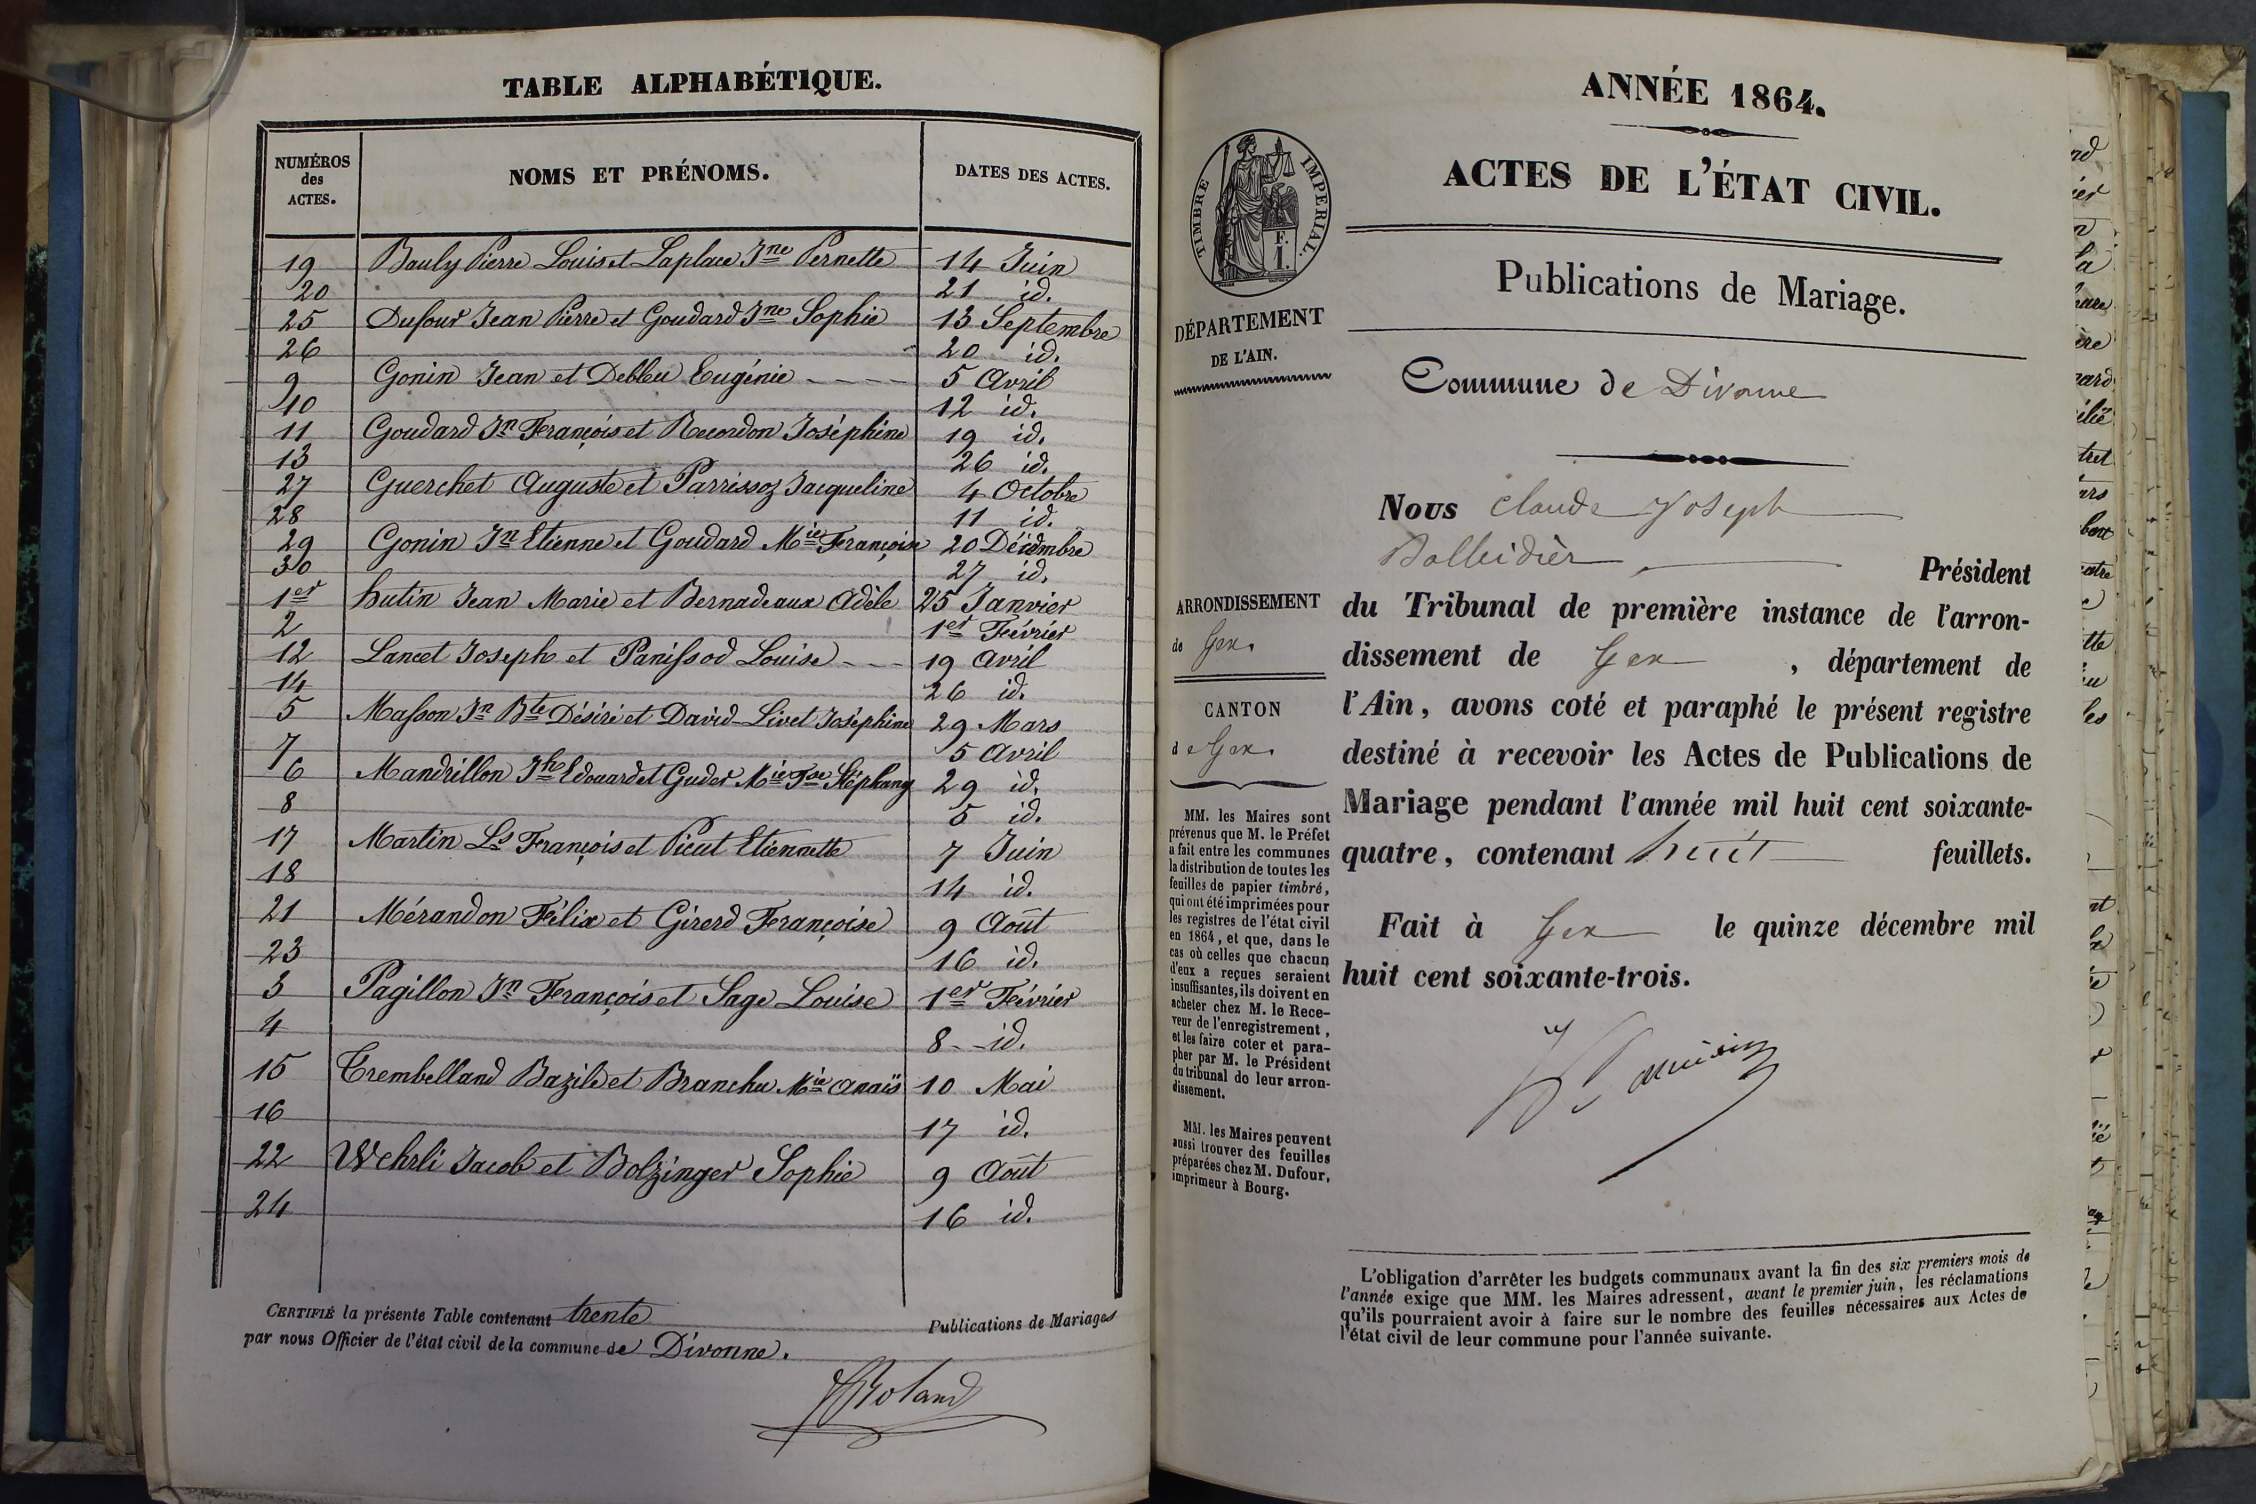 TABLE ALPHABÉTIQUE.
NUMÉROS des ACTES. NOMS ET PRÉNOMS. DATES DES ACTES.
19 Bouly Pierre Louis et Laplace Jne Pernette 14 Juin
20 21 id.
25 Dufour Jean Pierre et Goudard Jne Sophie 13 Septembre
26 20 id.
9 Gonin Jean et Debleu Eugénie 5 Avril
10 12 id.
11 Goudard Jn François et Recordon Joséphine 19 id.
13 26 id.
27 Guerchet Auguste et Parrissoz Jacqueline 4 Octobre
28 11 id.
29 Gonin Jn Etienne et Goudard Mie Françoise 20 Décembre
30 27 id.
1er hutin Jean Marie et Bernadeaux Adèle 25 Janvier
2 1er Février
12 Lancet Joseph et Panissod Louise 19 Avril
14 26 id.
5 Masson Jn Bte Désiré et David-Livet Joséphine 29 Mars
7 5 Avril
6 Mandrillon Jh Edouard et Guder Mie Fse Stéphany 29 id.
8 5 id.
17 Martin Ls François et Picut Etiennette 7 Juin
18 14 id.
21 Mérandon Félix et Girerd Françoise 9 Août
23 16 id.
3 Pagillon Jn François et Sage Louise 1er Février
4 8 id.
15 Trembelland Bazile et Branchu Mie Anaïs 10 Mai
16 17 id.
22 Wehrli Jacob et Bolzinger Sophie 9 Août
24 16 id.
CERTIFIÉ la présente Table contenant trente Publications de Mariages
par nous Officier de l'état civil de la commune de Divonne.
Roland
ANNÉE 1864.
ACTES DE L'ÉTAT CIVIL.
TIMBRE IMPERIAL.
F.
1.
Publications de Mariage.
DÉPARTEMENT
DE L'AIN.
Commune de Divonne
Nous Claude Joseph
Président
du Tribunal de première instance de l'arron-
dissement de Gex, département de
l'Ain, avons coté et paraphé le présent registre
destiné à recevoir les Actes de Publications de
Mariage pendant l'année mil huit cent soixante-
quatre, contenant huit feuillets.
Fait à Gex le quinze décembre mil
huit cent soixante-trois.
ARRONDISSEMENT
de Gex.
CANTON
de Gex.
MM. les Maires sont
prévenus que M. le Préfet
a fait entre les communes
la distribution de toutes les
feuilles de papier timbré,
qui ont été imprimées pour
les registres de l'état civil
en 1864, et que, dans le
cas où celles que chacun
d'eux a reçues seraient
insuffisantes, ils doivent en
acheter chez M. le Rece-
veur de l'enregistrement,
et les faire coter et para-
pher par M. le Président
du tribunal de leur arron-
dissement.
MM. les Maires peuvent
aussi trouver des feuilles
préparées chez M. Dufour,
imprimeur à Bourg.
L'obligation d'arrêter les budgets communaux avant la fin des six premiers mois de
l'année exige que MM. les Maires adressent, avant le premier juin, les réclamations
qu'ils pourraient avoir à faire sur le nombre des feuilles nécessaires aux Actes de
l'état civil de leur commune pour l'année suivante.